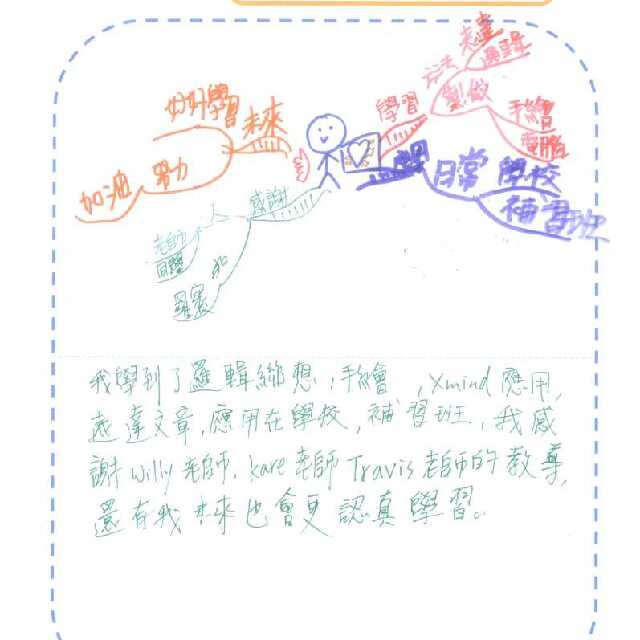 表達
方法 邏輯
學習 製做
手繪
電腦
好好學習 未來
加油 努力
日常 學校
補習班
感謝
人
老師
同學
和
我學到了邏輯聯想,手繪,Xmind應用,
表達文章,應用在學校,補習班,我感
謝Willy老師,kare老師 Travis老師的教導,
還有我未來也會更認真學習。